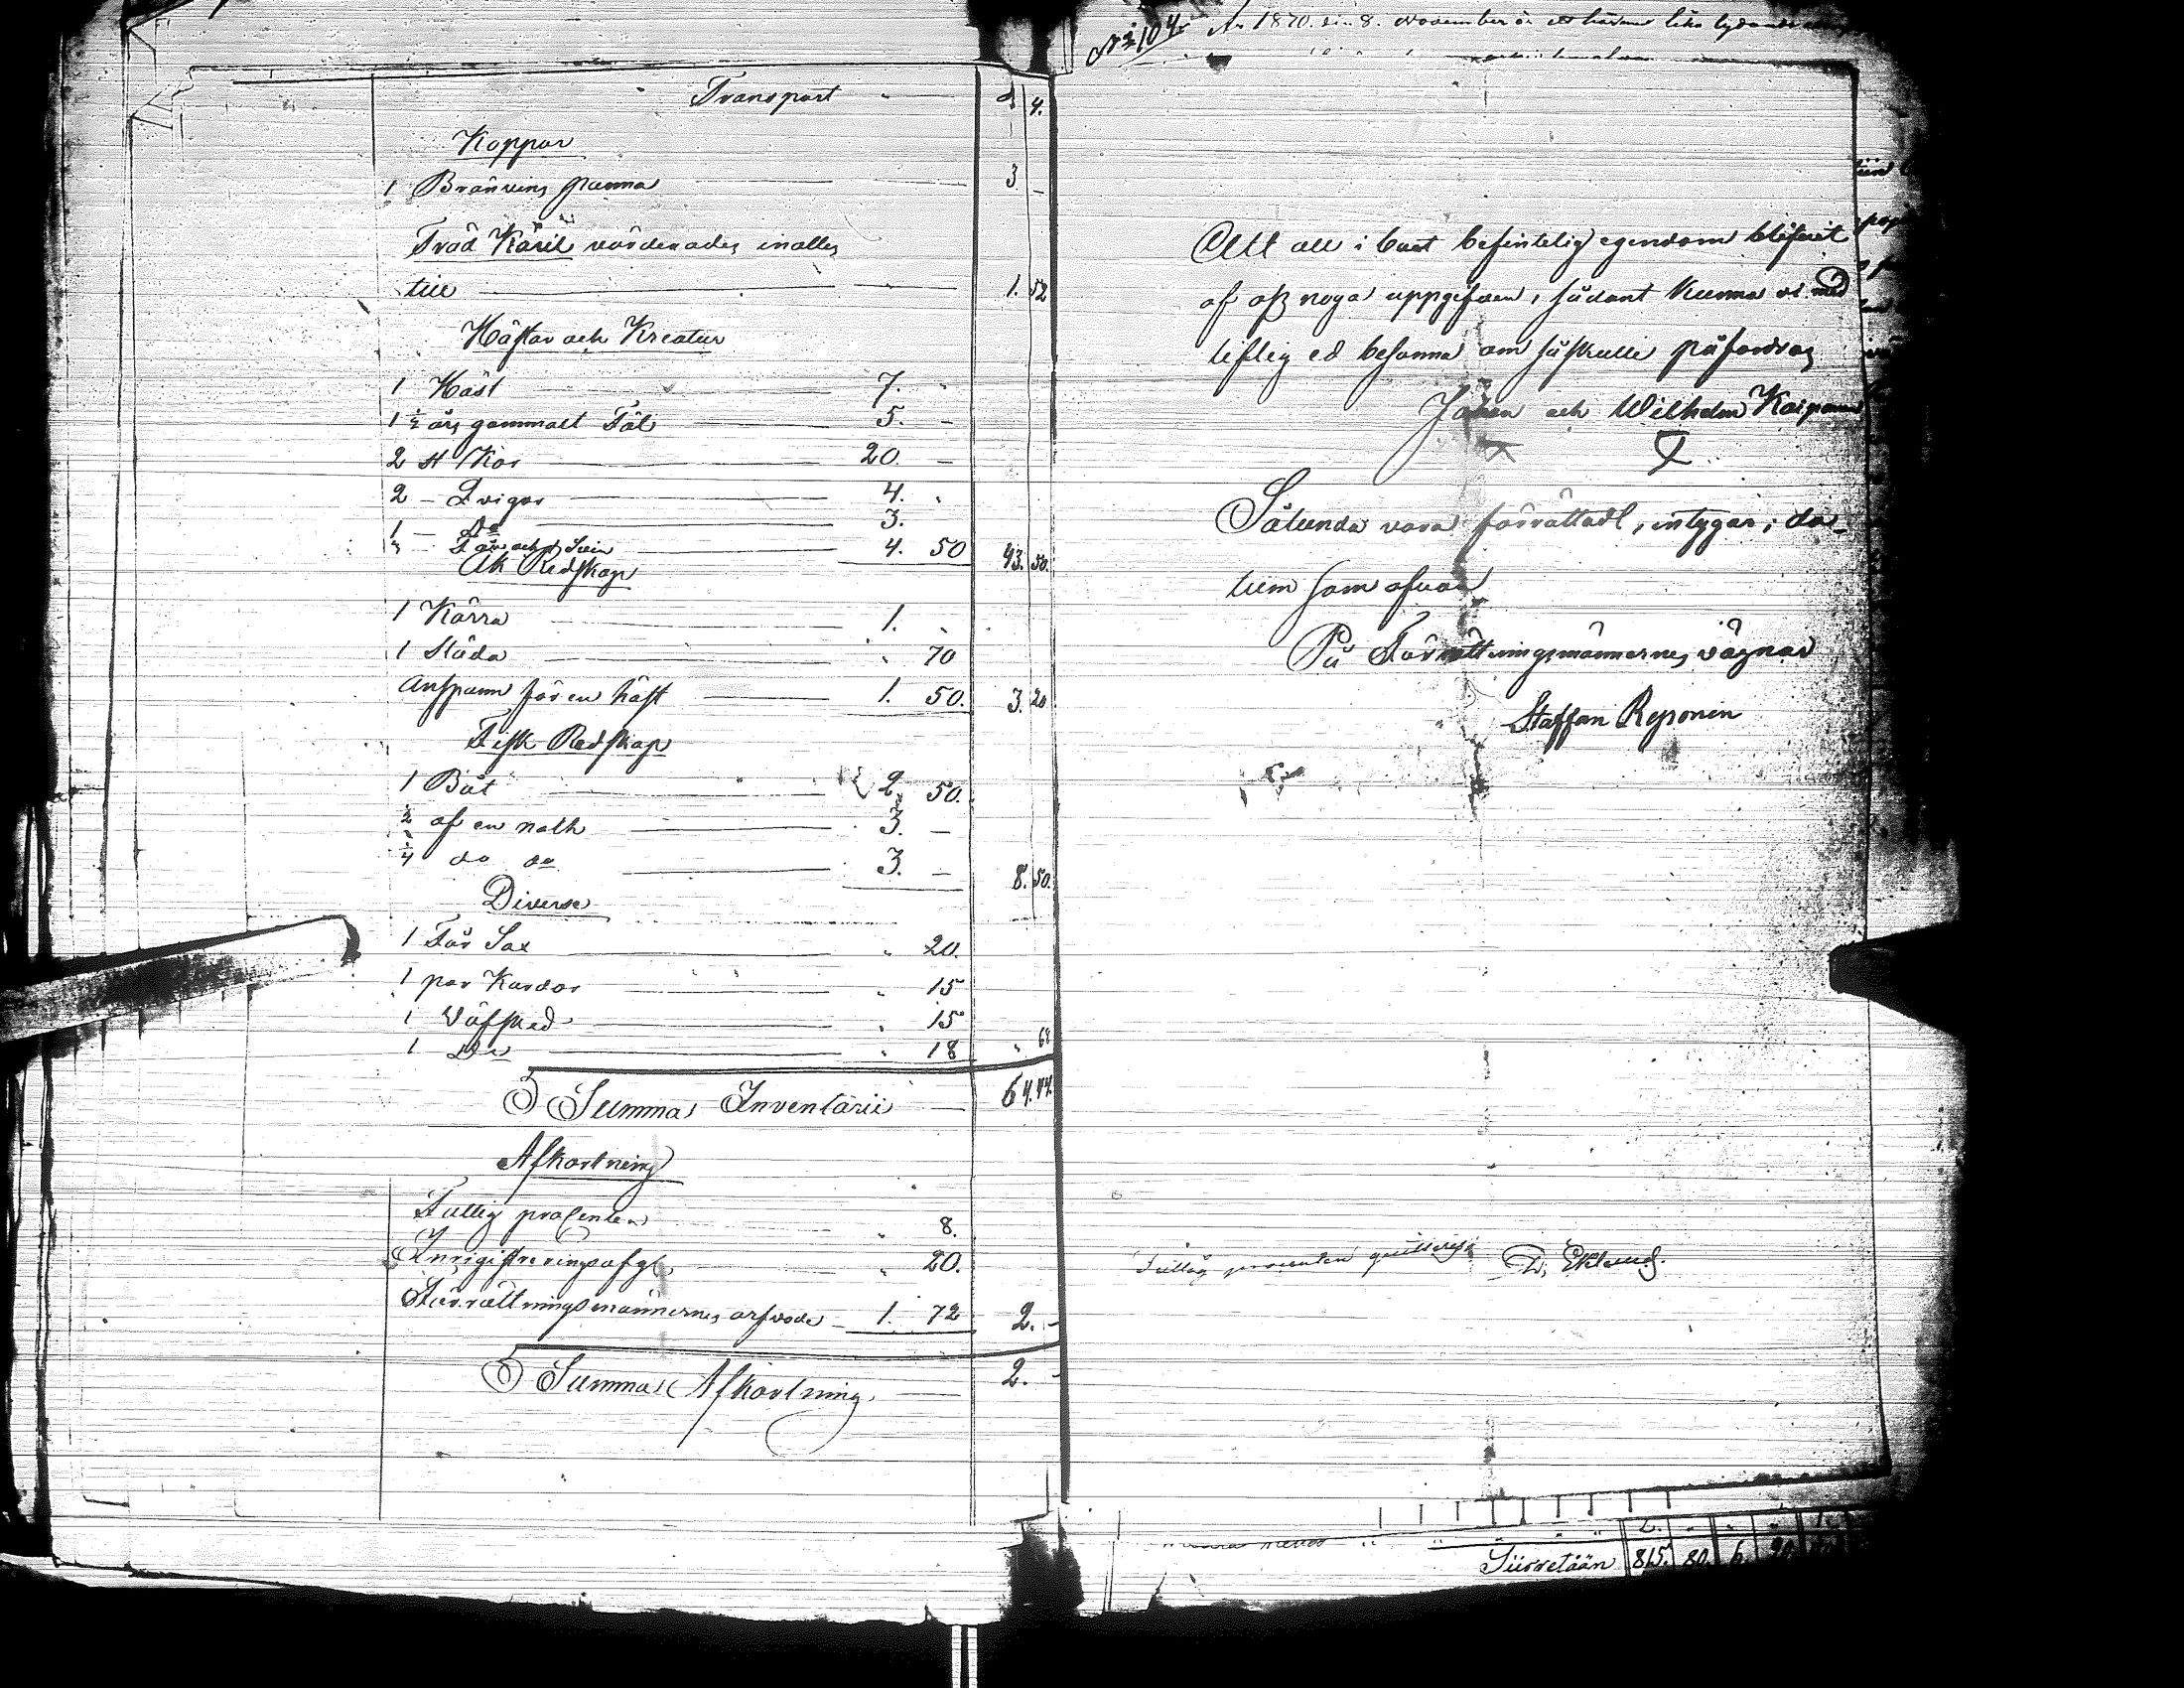 Transport - 4.
Koppar
1 Bränvins panna 3 -
Träd Käril värderades inalles
till 1. 52
Hästar och Kreatur
1 Häst 7. -
1 ½ års gammalt Föl 5. -
2 st Kor 20. -
2 - Qvigor 4. -
1 - Do 3.
Får och Svin 4. 50 43. 50.
Åk Redskap
1 Kärra 1. -
1 Släda " 70
Anspann för en häst 1. 50. 3. 20
Fisk Redskap
1 Båt 2 50.
½ af en noth 3. -
¼ do do 3. - 8. 50.
Diverse
1 Får Sax " 20.
1 par Kardor " 15
1 Väfsked " 15
1 Do " 18 " 68
Summa Inventarii 64. 44.
Afkortning
Fattig procenten " 8.
Inrigistreringsafgt " 20.
Förrättningsmännernes arfvode 1. 72 2. -
Summa Afkortning 2. -
No 104. År 1870 den 8. November är ett härmed lika lydande
Att all i boet befintelig egendom blifvit
af oss noga uppgifven, sådant kunna vi med
liflig ed besanna om så skulle påfordras
Johan och Wilhelm Kaipanen
Sålunda vara förrättadt, intygar; da-
tum som ofvan
På Förrättningsmännernes vägnar
Staffan Reponen
Fattig procenten qvitteras Eklund.
Siirretään 815. 80. 6.